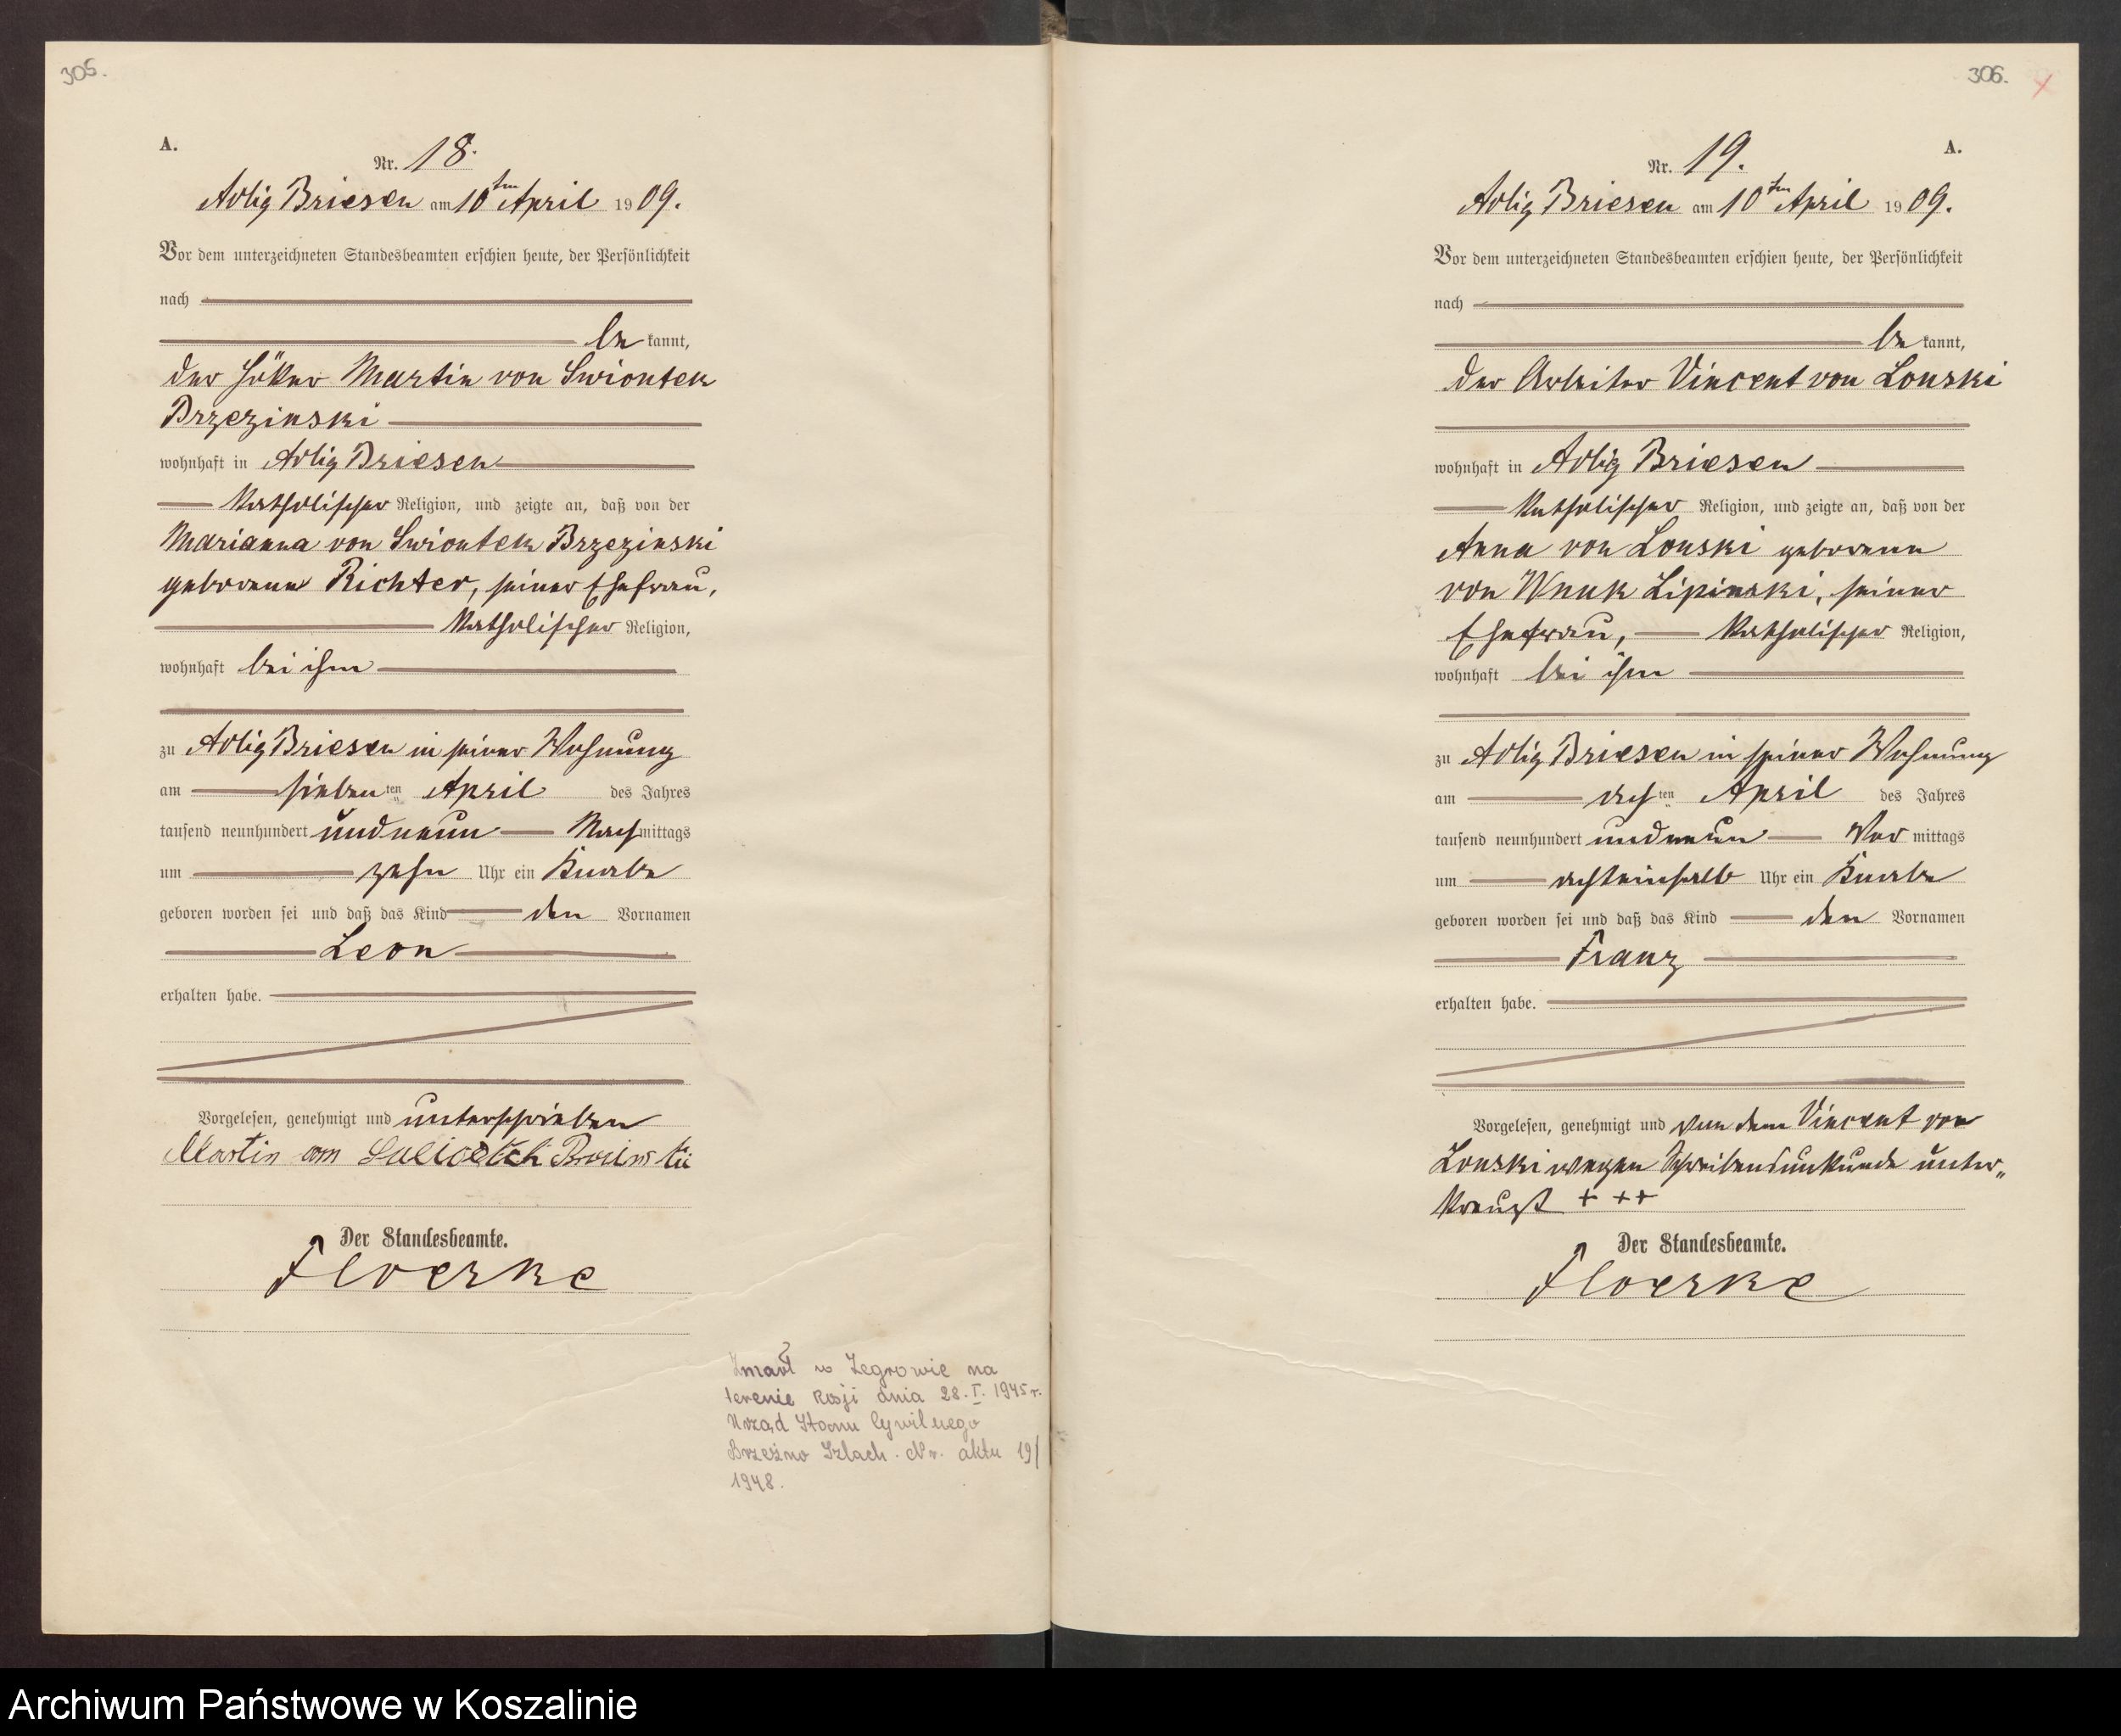 305.
A.
Nr. 18.
Adlig Briesen am 10ten April 1909.
Vor dem unterzeichneten Standesbeamten erschien heute, der Persönlichkeit
nach
be kannt,
der Höker Martin von Swiontek
Brzezinski
wohnhaft in Adlig Briesen
katholischer Religion, und zeigte an, daß von der
Marianna von Swiontek Brzezinski
geborene Richter, seiner Ehefrau,
katholischer Religion,
wohnhaft bei ihm
zu Adlig Briesen in seiner Wohnung
am siebenten April des Jahres
tausend neunhundert und neun Nachmittags
um zehn Uhr ein Knabe
geboren worden sei und daß das Kind den Vornamen
Leon
erhalten habe.
Vorgelesen, genehmigt und unterschrieben
Martin
Der Standesbeamte.
Floerke
Zmarł w Zegrowie na
terenie Rosji dnia 28. I. 1945 r.
Urząd Stanu Cywilnego
Brzeźno Szlach. Nr. aktu 19/
1948.
306.
A.
Nr. 19.
Adlig Briesen am 10ten April 1909.
Vor dem unterzeichneten Standesbeamten erschien heute, der Persönlichkeit
nach
be kannt,
der Arbeiter Vincent von Lonski
wohnhaft in Adlig Briesen
katholischer Religion, und zeigte an, daß von der
Anna von Lonski geborene
von Wnuk Lipinski, seiner
Ehefrau, katholischer Religion,
wohnhaft bei ihm
zu Adlig Briesen in seiner Wohnung
am achten April des Jahres
tausend neunhundert und neun Vor mittags
um achteinhalb Uhr ein Knabe
geboren worden sei und daß das Kind den Vornamen
Franz
erhalten habe.
Vorgelesen, genehmigt und von dem Vincent von
Lonski wegen Schreibensunkunde unter„
kreuzt + ++
Der Standesbeamte.
Floerke
Archiwum Państwowe w Koszalinie